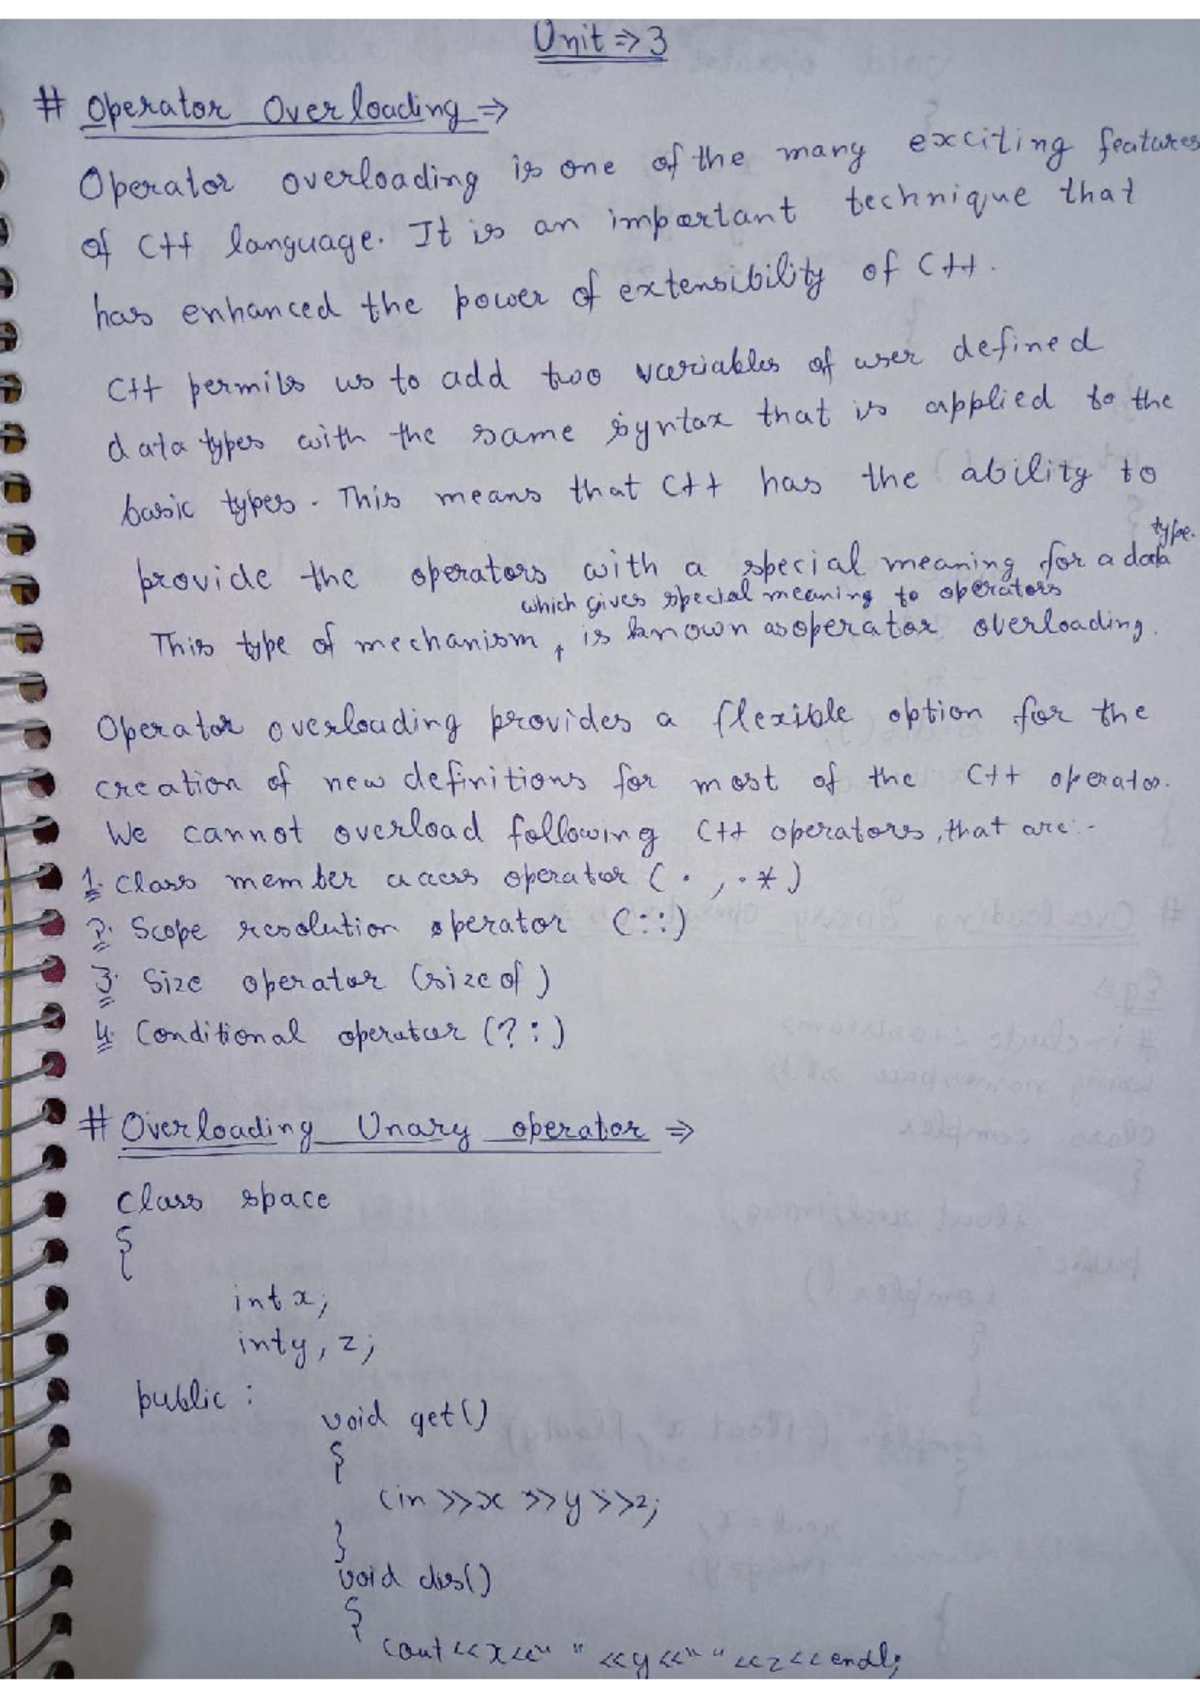 Unit ⇒ 3
# Operator Overloading ⇒
Operator overloading is one of the many exciting features
of C++ language. It is an important technique that
has enhanced the power of extensibility of C++.
C++ permits us to add two variables of user defined
data types with the same syntax that is applied to the
basic types. This means that C++ has the ability to
provide the operators with a special meaning for a data type.
which gives special meaning to operators
This type of mechanism, is known as operator overloading.
Operator overloading provides a flexible option for the
creation of new definitions for most of the C++ operator.
We cannot overload following C++ operators, that are:-
1. Class member access operator ( . , .* )
2. Scope resolution operator (::)
3. Size operator (sizeof)
4. Conditional operator (?:)
# Overloading Unary operator ⇒
class space
{
int x;
int y, z;
public :
void get()
{
cin >>x >>y >>z;
}
void dis()
{
cout <<x<<" " <<y <<" " <<z<<endl;